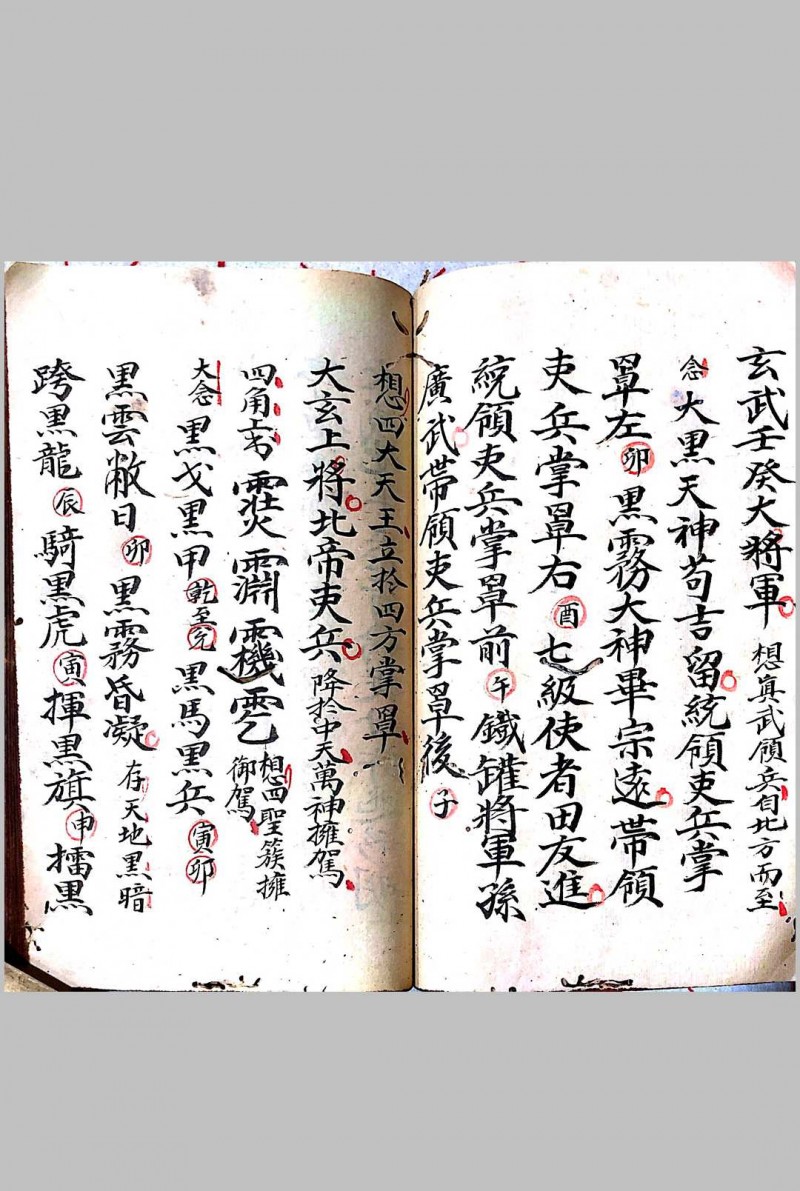 玄武壬癸大將軍 想真武領兵自北方而至
念 大黑天神苟吉留統領吏兵掌
罩左 卯 黑霧大神畢宗遠帶領
吏兵掌罩右 酉 七級使者田友進
統領吏兵掌罩前 午 鐵鑵將軍孫
廣武帶領吏兵掌罩後 子
想四大天王立於四方掌罩
大玄上將北帝吏兵 降於中天萬神擁駕
四角 靐 想四聖簇擁御駕
大念 黑戈黑甲 乾至 黑馬黑兵 寅 卯
黑雲敝日 卯 黑霧昏凝 存天地黑暗
跨黑龍 辰 騎黑虎 寅 揮黑旗 申 擂黑